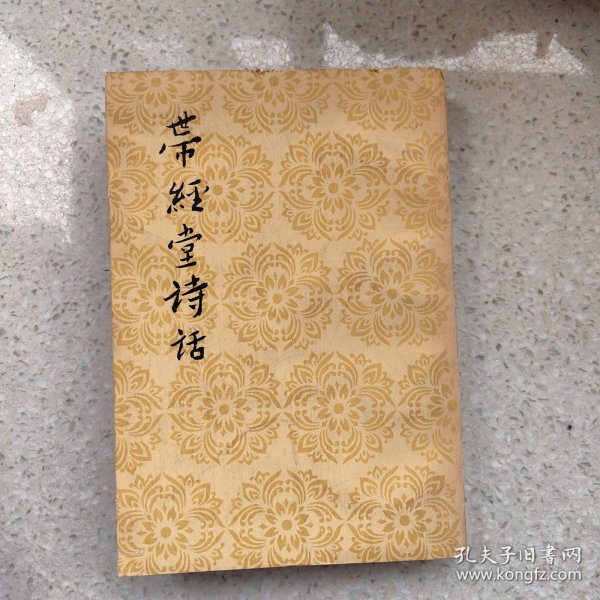 帶經堂詩話
孔夫子旧書网
www.kongfz.com